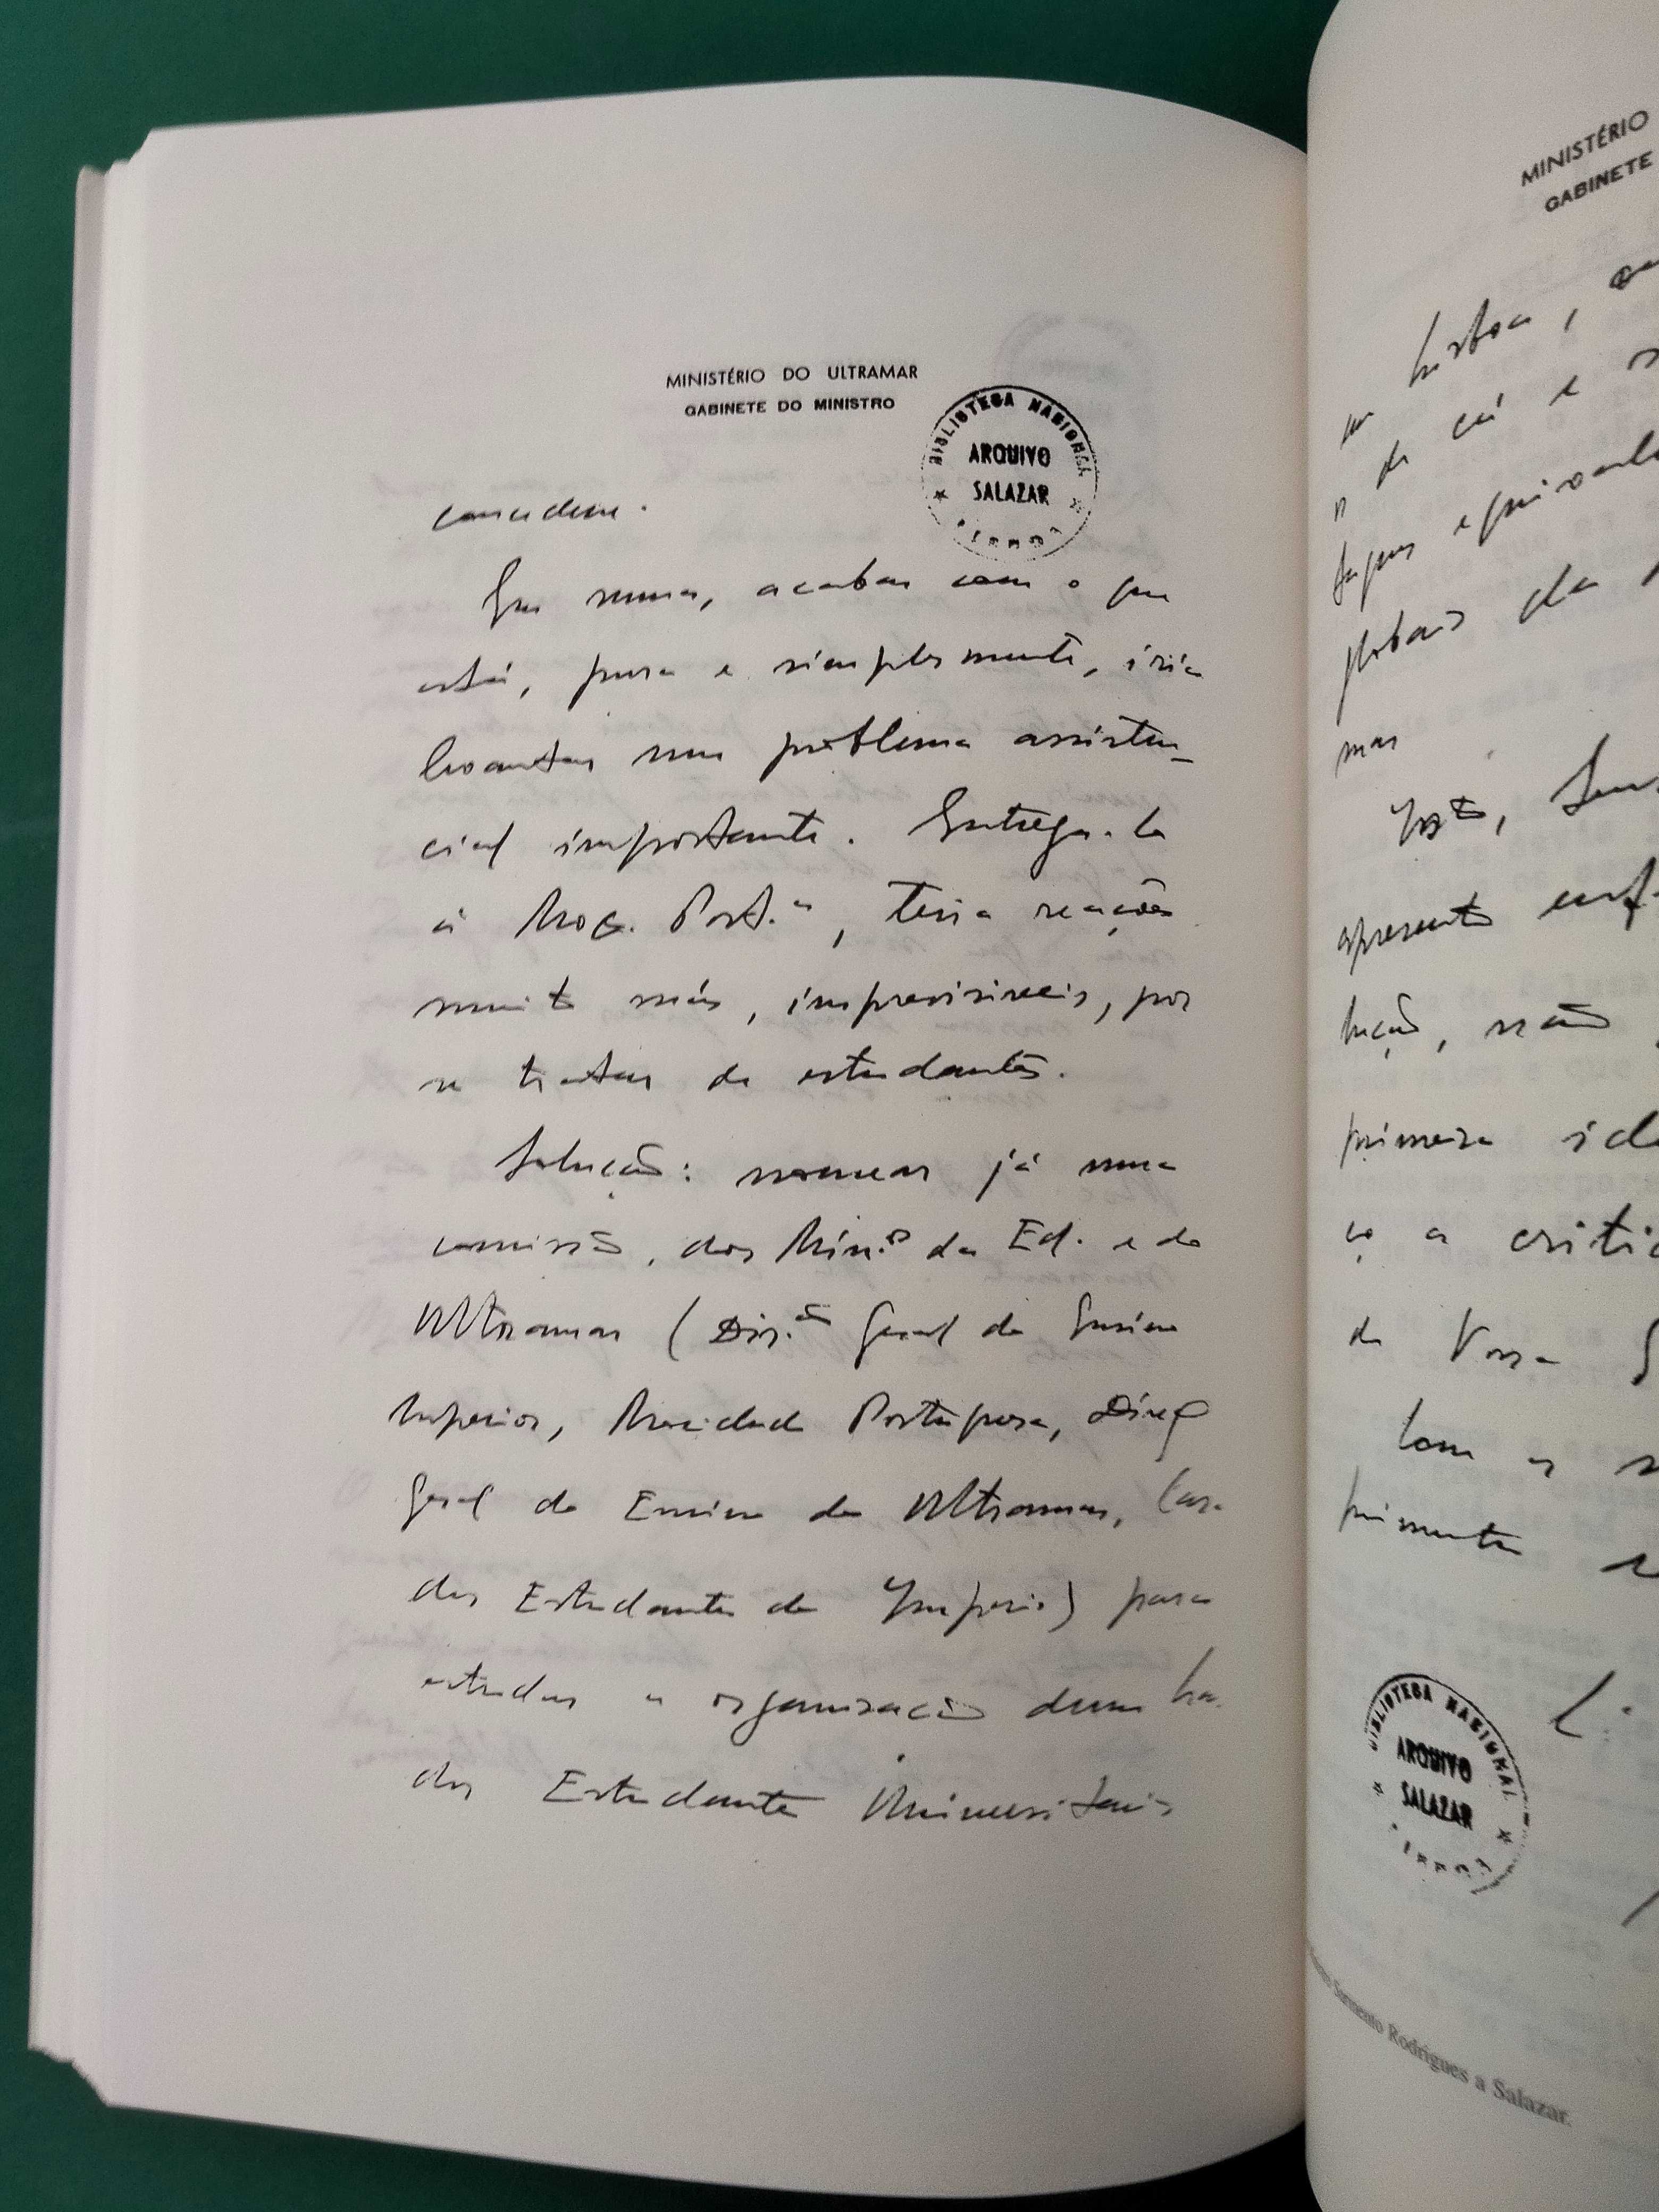 MINISTÉRIO DO ULTRAMAR
GABINETE DO MINISTRO
BIBLIOTECA NACIONAL
ARQUIVO
SALAZAR
LISBOA
concedem.
Em suma, acabar com o que
está, pura e simplesmente, iria
levantar um problema assisten-
cial importante. Entrega-la
à Moc. Port.ª, teria reacções
muito más, imprevisiveis, por
se tratar de estudantes.
Solução: nomear já uma
comissão, dos Min.os da Ed. e do
Ultramar (Dir.ão Geral do Ensino
Superior, Mocidade Portuguesa, Direç
Geral do Ensino do Ultramar, Casa
dos Estudantes do Imperio) para
estudar a organização duma
dos Estudantes Universitarios
MINISTÉRIO
GABINETE
Lisboa,
de cá e
globais da
mas
Isto,
apresento
lução, não
primeira
ço a
de Vossa
Com os
BIBLIOTECA NACIONAL
ARQUIVO
SALAZAR
Sarmento Rodrigues a Salazar.